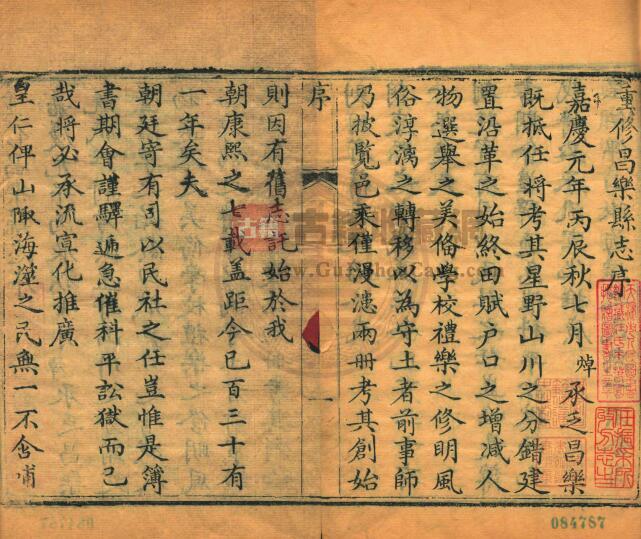 重修昌樂縣志序
嘉慶元年丙辰秋七月焯承乏昌樂
既抵任將考其星野山川之分錯建
置沿革之始終田賦户口之增減人
物選舉之美俻學校禮樂之修明風
俗淳漓之轉移以為守土者前事師
乃披覽邑乘僅漫漶兩册考其創始
序
一
則因有舊志託始於我
朝康熙之七載盖距今已百三十有
一年矣夫
朝廷寄有司以民社之任豈惟是簿
書期會謹驛遞急催科平訟獄而已
哉將必承流宣化推廣
皇仁俾山陬海澨之民無一不含哺
084787